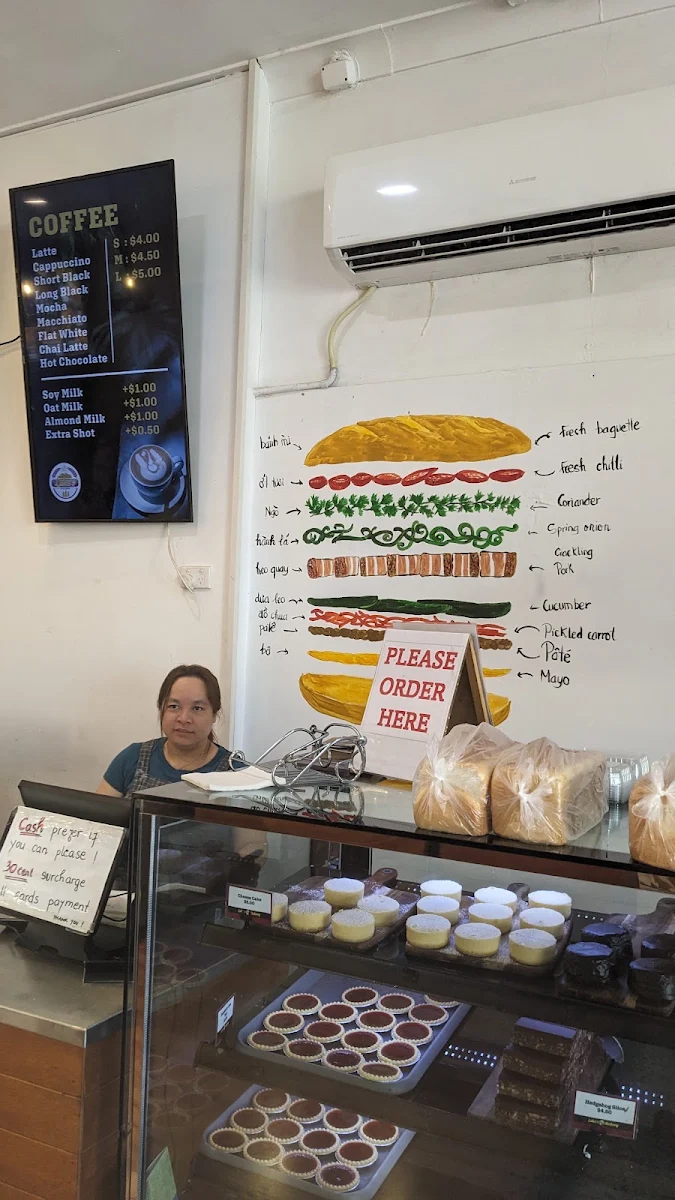 COFFEE
Latte
Cappuccino
Short Black
Long Black
Mocha
Macchiato
Flat White
Chai Latte
Hot Chocolate
S : $4.00
M : $4.50
L : $5.00
Soy Milk +$1.00
Oat Milk +$1.00
Almond Milk +$1.00
Extra Shot +$0.50
bánh mì
ớt tươi
Ngò
hành lá
heo quay
dưa leo
đồ chua
patê
bơ
Fresh baguette
Fresh chilli
Coriander
Spring onion
Crackling
Pork
Cucumber
Pickled carrot
Pâté
Mayo
PLEASE
ORDER
HERE
Cash prefer if
you can please !
30cent surcharge
cards payment
thank you !
Cheese Cake
Hedgehog Slice
$4.50